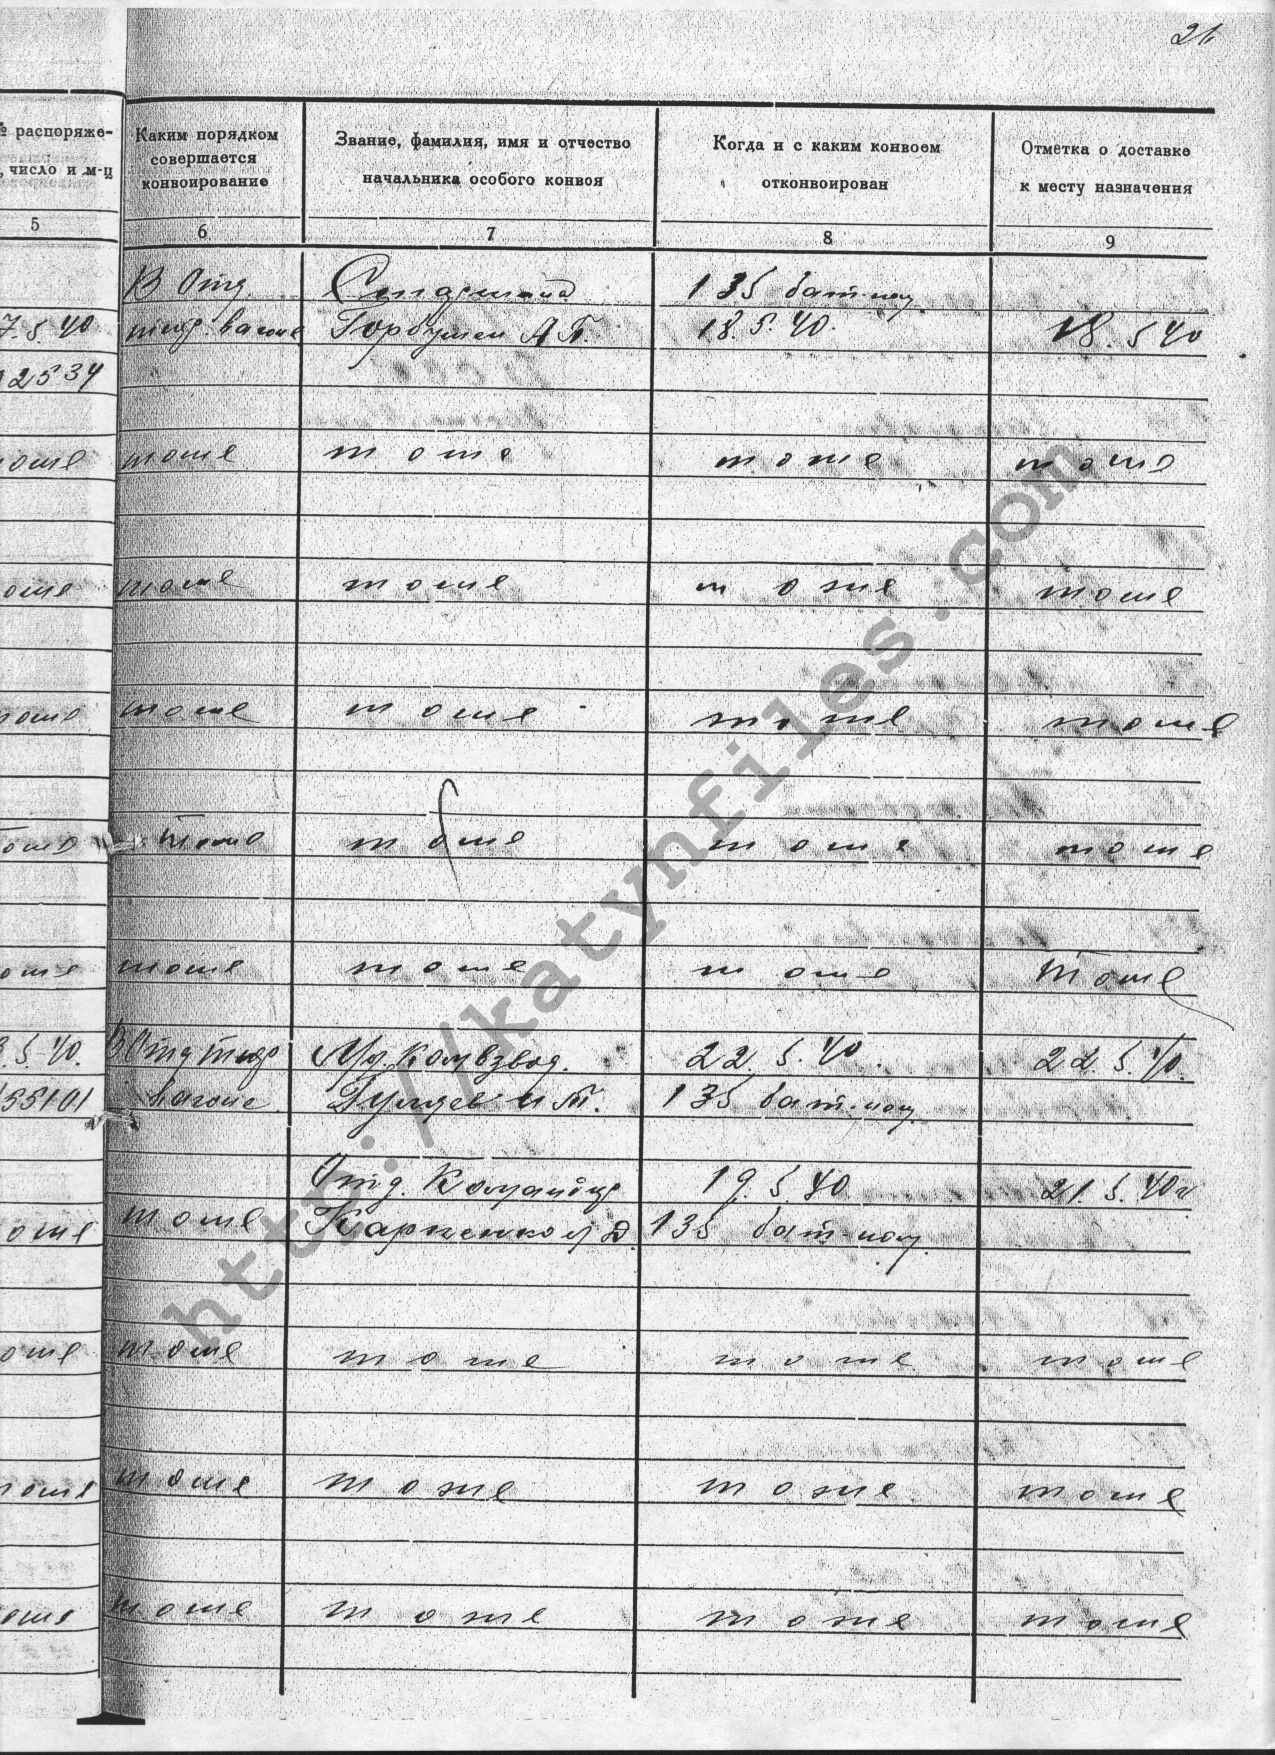 21
№ распоряже-
, число и м-ц
Каким порядком
совершается
конвоирование
Звание, фамилия, имя и отчество
начальника особого конвоя
Когда и с каким конвоем
отконвоирован
Отметка о доставке
к месту назначения
5 6 7 8 9
В Отд. 135 бат-ном
7.5.40 вагоне Горбулин А П. 18.5.40. 18.5 40
12534
тоже тоже тоже тоже
тоже тоже тоже тоже
тоже тоже тоже тоже
тоже тоже тоже тоже
тоже тоже тоже тоже
3.5.40. В Отд Мл. Комвзвод. 22.5.40 22.5.40.
155101 вагоне Гуляев И П. 135 бат-ном
Отд. Командир 19.5.40 21.5.40г
тоже Карпенко Л Д. 135 бат-ном
тоже тоже тоже тоже
тоже тоже тоже тоже
тоже тоже тоже тоже
http://katynfiles.com